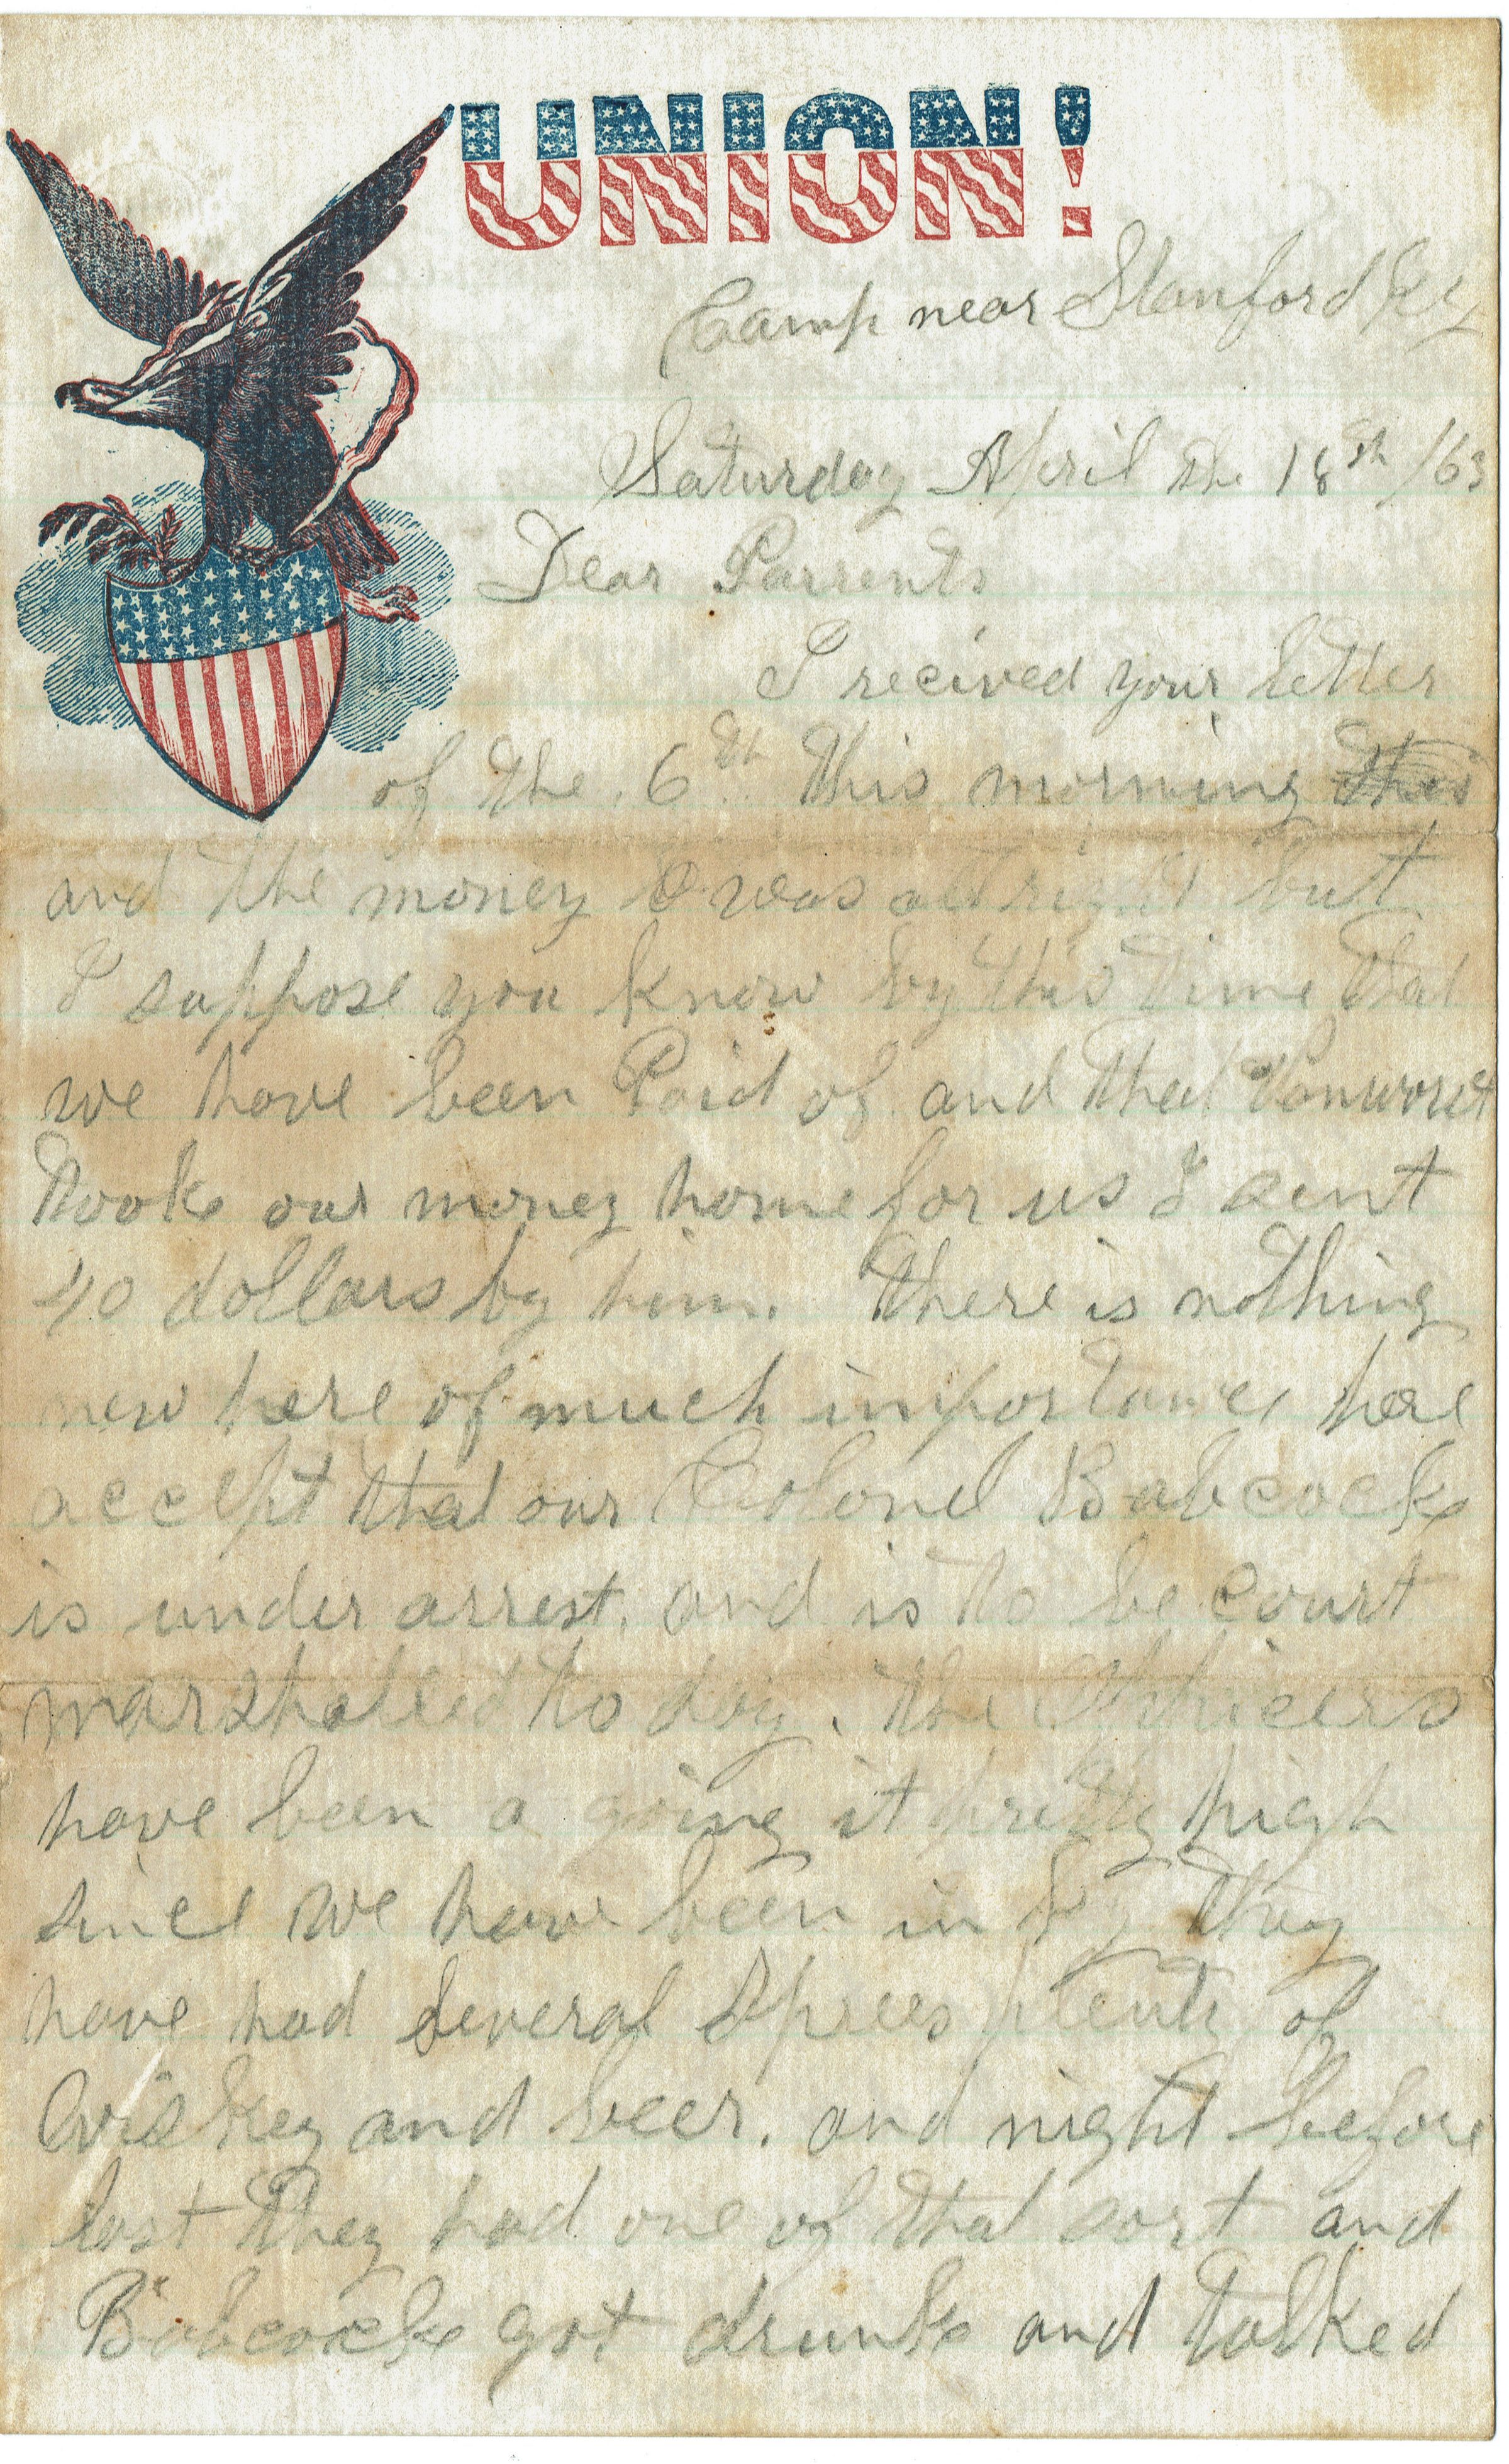 UNION!
Camp near Stanford Ky
Saturday April the 18th /63
Dear Parrents
I recived your letter
of the 6th this morning this
and the money was all right but
I suppose you know by this time that
we have been Paid of and that
took our money home for us I sent
40 dollars by him. there is nothing
new here of much importance here
accept that our Colonel Babcock
is under arrest. and is to be court
marshalled to day. the Officers
have been a going it pretty high
since we have been in Ky they
have had several Sprees plenty of
Wiskey and beer. and night before
last they had one of that sort and
Babcock got drunk and talked